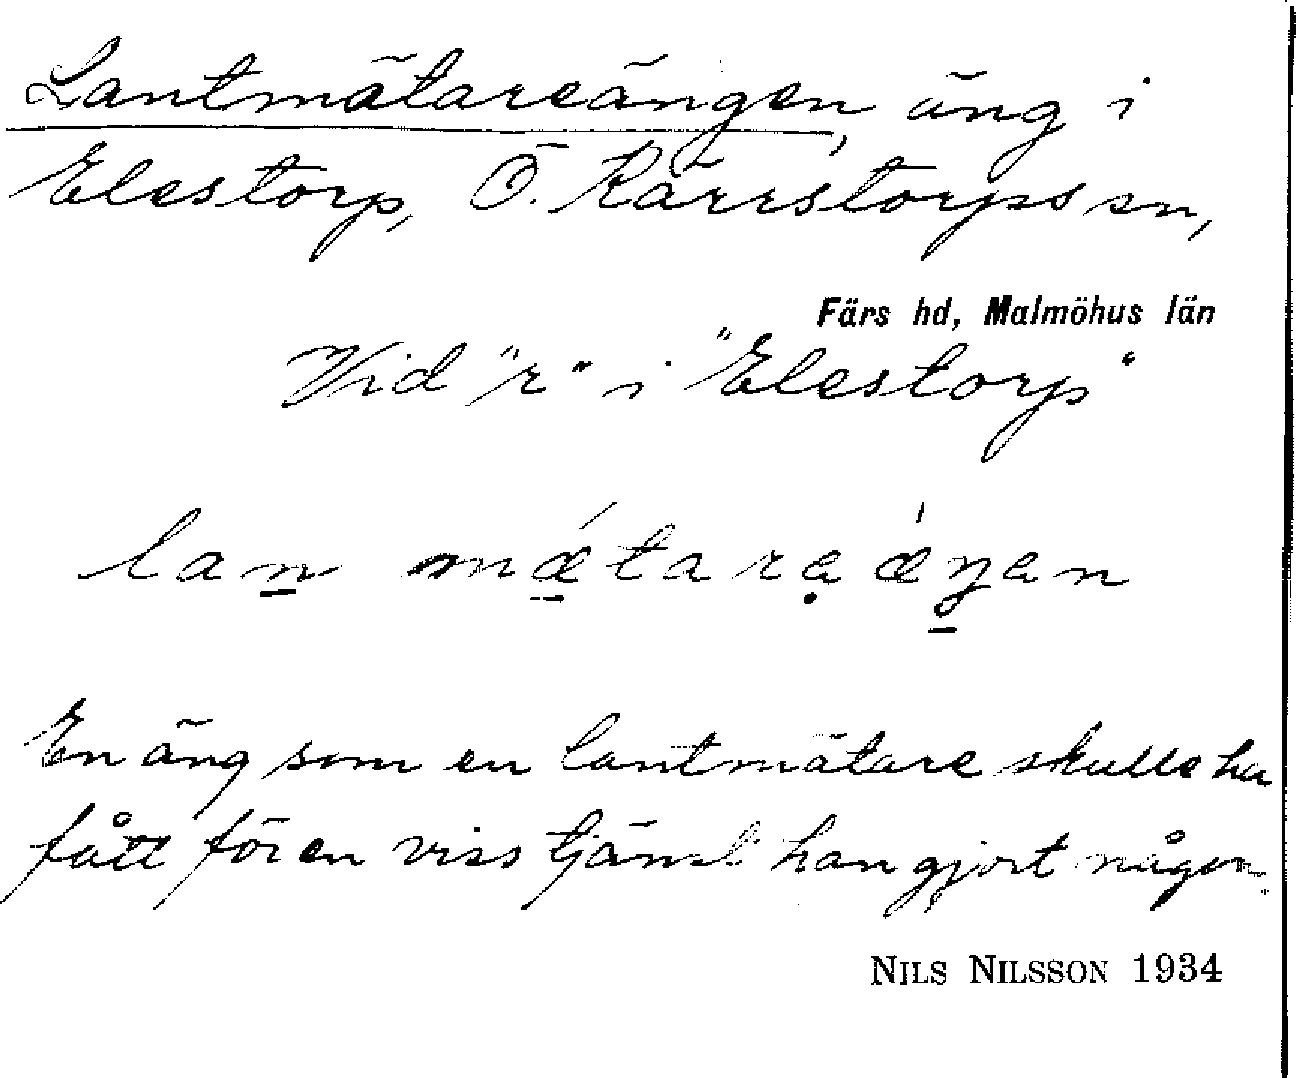 Lantmätareängen, äng i
Elestorp, Ö. Kärrstorps sn,
Färs hd, Malmöhus län
Vid "r" i "Elestorp"
lan mǽtarea ǽŋan
En äng som en lantmätare skulle ha
fått för en viss tjänst han gjort någon.
NILS NILSSON 1934